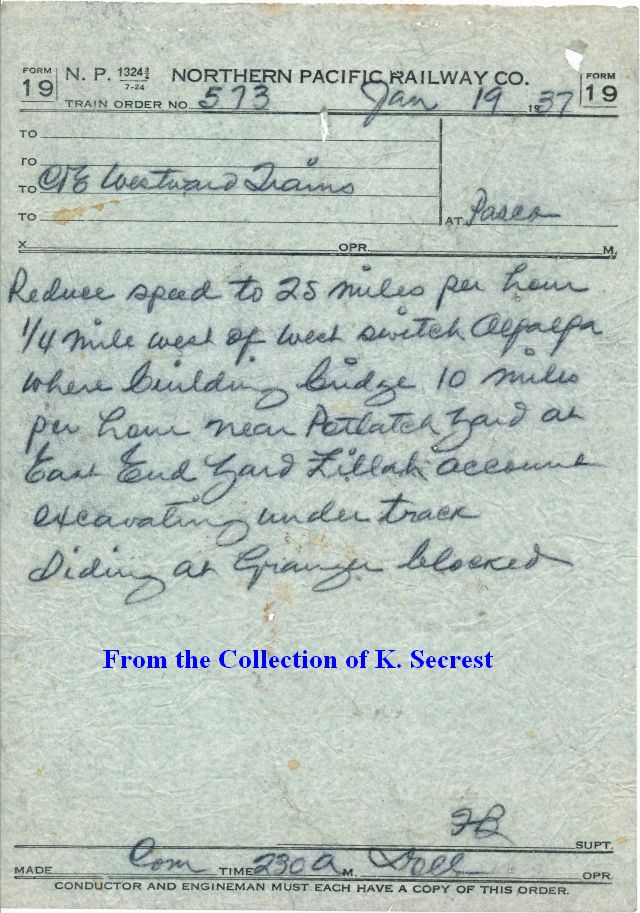 FORM 19
N. P. 1324½ 7-24 NORTHERN PACIFIC RAILWAY CO.
FORM 19
TRAIN ORDER NO. 573 Jan 19 1937
TO
TO
TO C&E Westward Trains
TO
AT Pasco
X OPR. M.
Reduce speed to 25 miles per hour
1/4 mile west of west switch
where building bridge 10 miles
per hour near Potlatch yard at
East End yard Zillah account
excavating under track
Siding at Granger blocked
From the Collection of K. Secrest
SUPT.
MADE Com TIME 230 A M. OPR.
CONDUCTOR AND ENGINEMAN MUST EACH HAVE A COPY OF THIS ORDER.